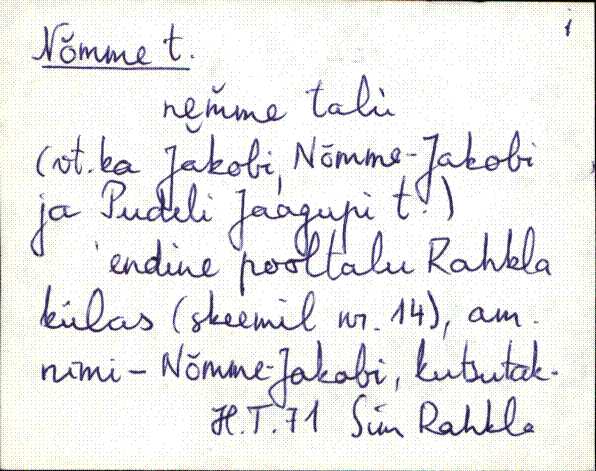 i
Nõmme t.
nem̆me talù
(vt. ka Jakobi, Nõmme-Jakobi,
ja Pudeli Jaagupi t.)
endine pooltalu Rahkla
külas (skeemil nr. 14), am.
nimi – Nõmme-Jakobi, kutsutak-
H.T. 71 Sim Rahkla